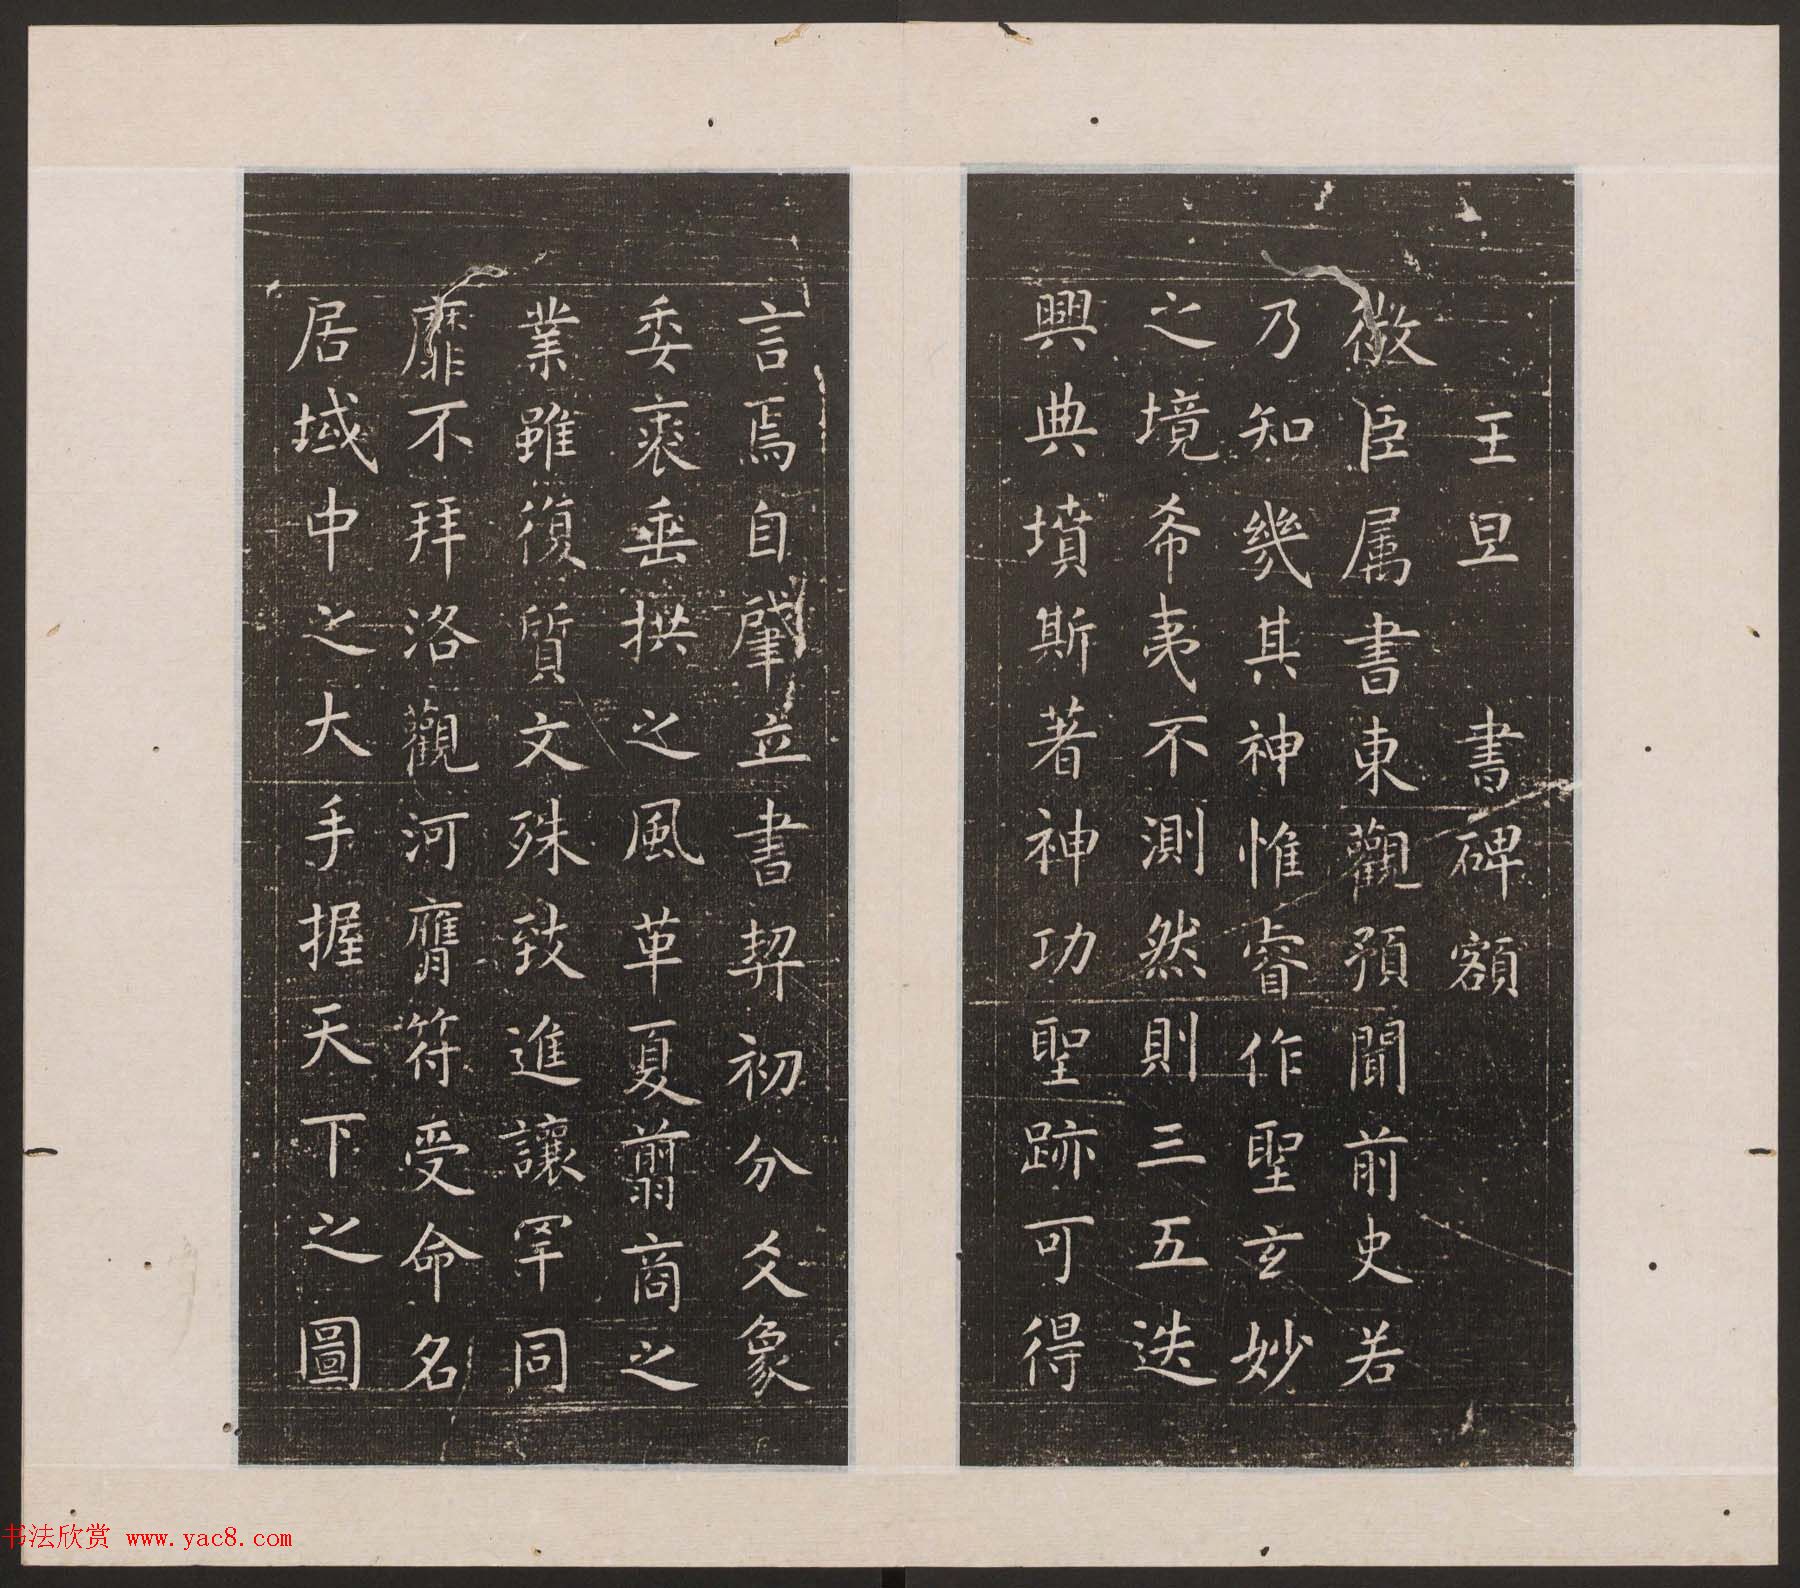 王旦 書碑額
微臣属書東觀預聞前史若
乃知幾其神惟睿作聖玄妙
之境希夷不測然則三五迭
興典墳斯著神功聖跡可得
言焉自肇立書契初分爻象
委裘垂拱之風革夏翦商之
業雖復質文殊致進讓罕同
靡不拜洛觀河膺符受命名
居域中之大手握天下之圖
书法欣赏 www.yac8.com